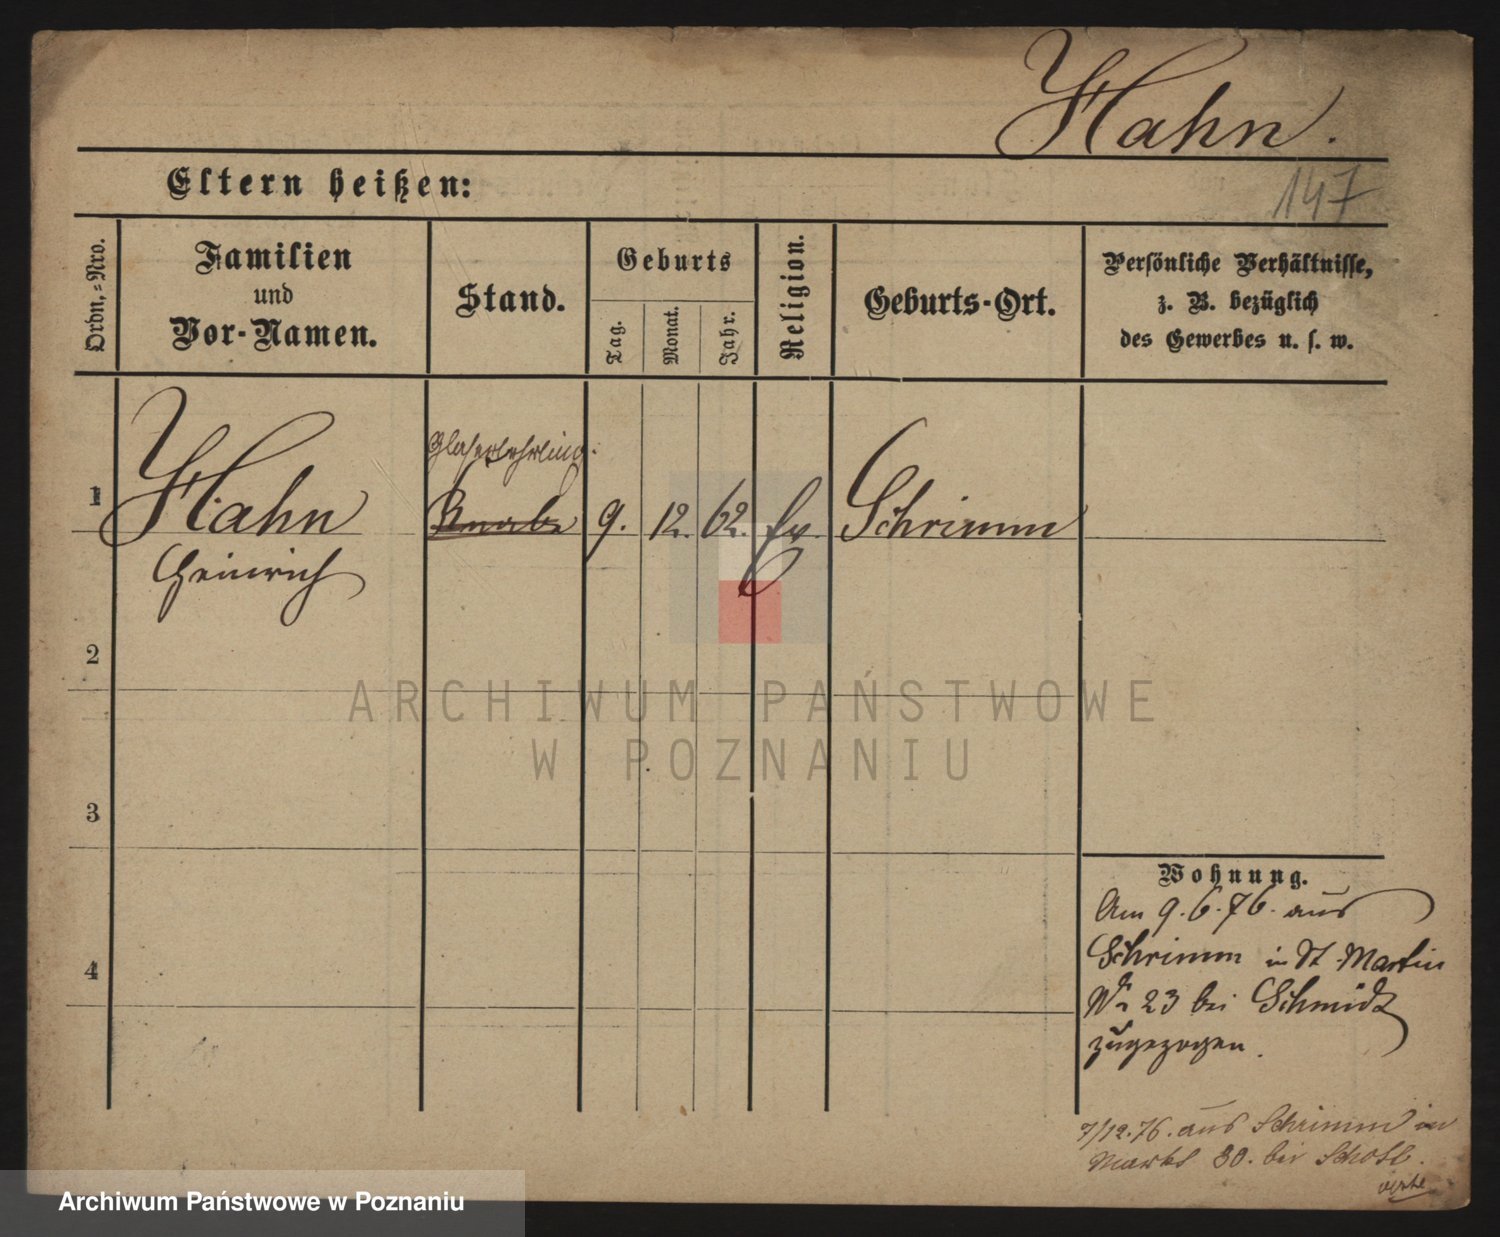 Hahn.
147
Eltern heißen:
Ordn.=Nro.
Familien
und
Vor-Namen.
Stand.
Geburts
Tag.
Monat.
Jahr.
Religion.
Geburts-Ort.
Persönliche Verhältnisse,
z. B. bezüglich
des Gewerbes u. s. w.
Glaserlehrling.
1 Hahn Knabe 9. 12. 62. Ev. Schrimm
Heinrich
2
3
4
Wohnung.
Am 9.6.76. aus
Schrimm in St. Martin
Nr 23 bei Schmidt
zugezogen.
7/12.76. aus Schrimm in
Markt 80. bei
ARCHIWUM PAŃSTWOWE
W POZNANIU
Archiwum Państwowe w Poznaniu